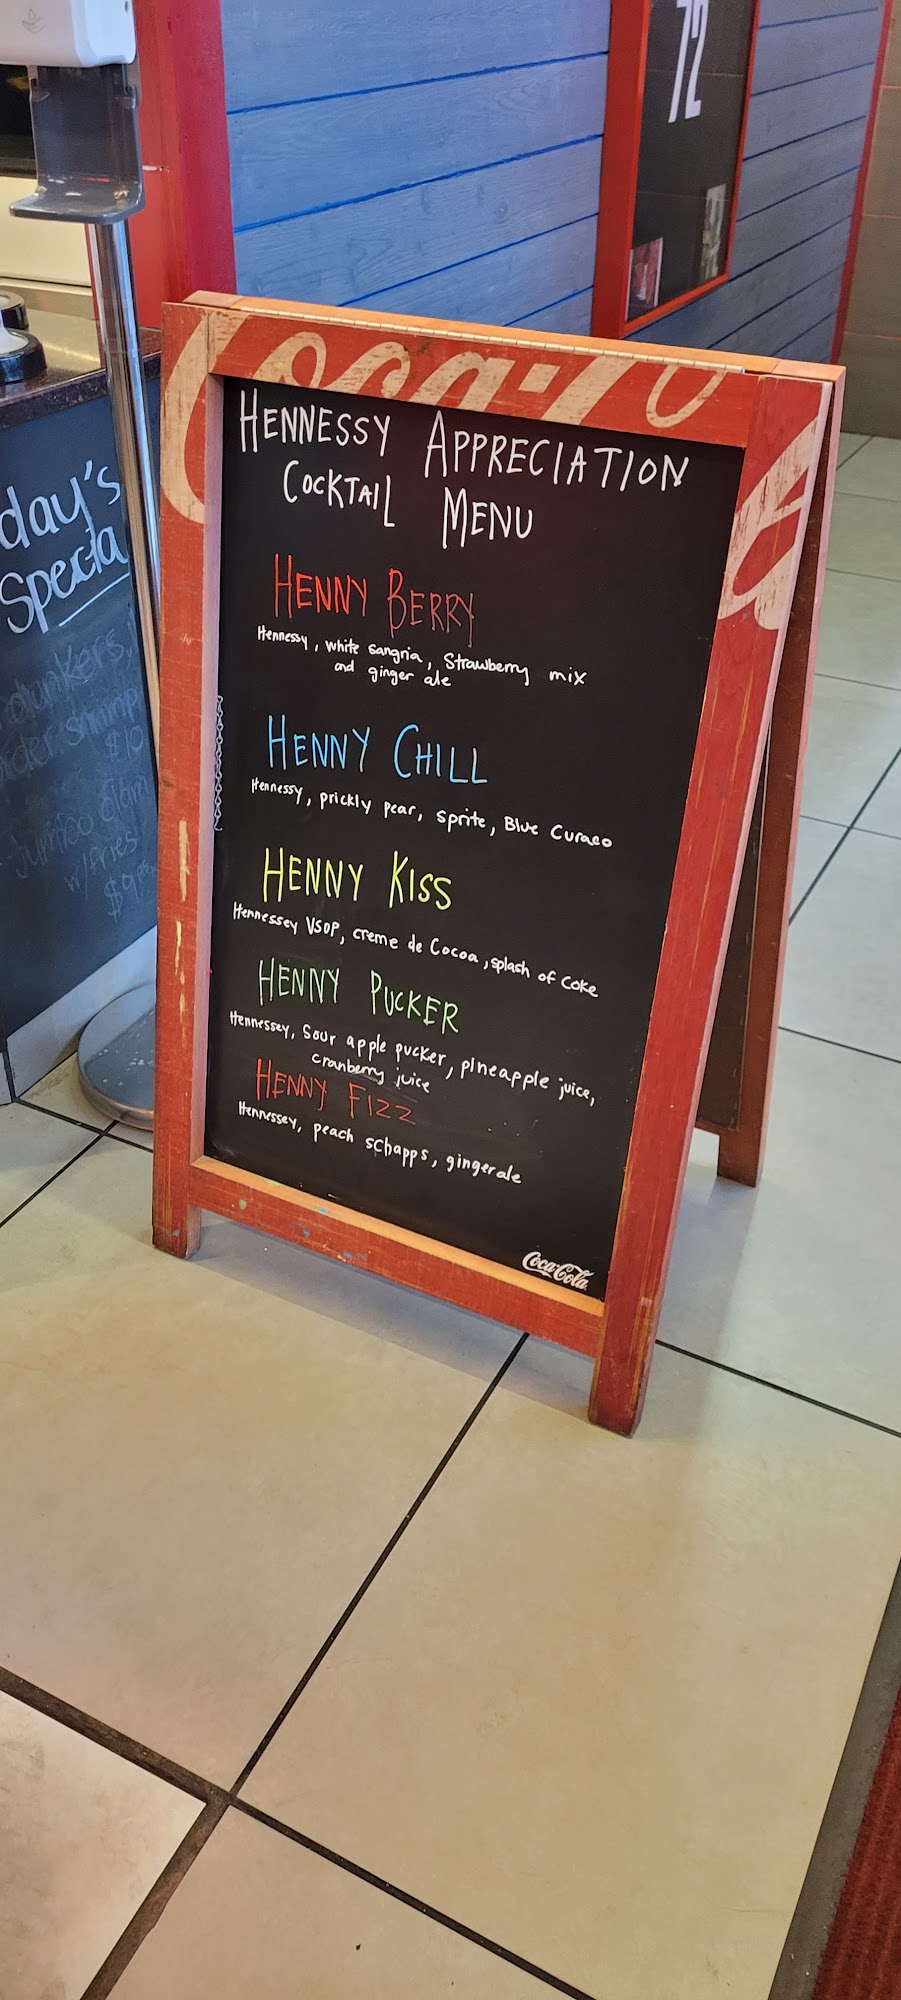 72
Coca-Co
HENNESSY APPRECIATION
COCKTAIL MENU
HENNY BERRY
Hennessy, white sangria, Strawberry mix
and ginger ale
HENNY CHILL
Hennessy, prickly pear, sprite, Blue Curaco
HENNY KISS
Hennessey VSOP, creme de Cocoa, splash of coke
HENNY PUCKER
Hennessey, Sour apple pucker, pineapple juice,
cranberry juice
HENNY FIZZ
Hennessey, peach schapps, gingerale
Coca-Cola
day's
Specia
dunkers,
rder shrimp
$10
Jumbo clam
w/fries